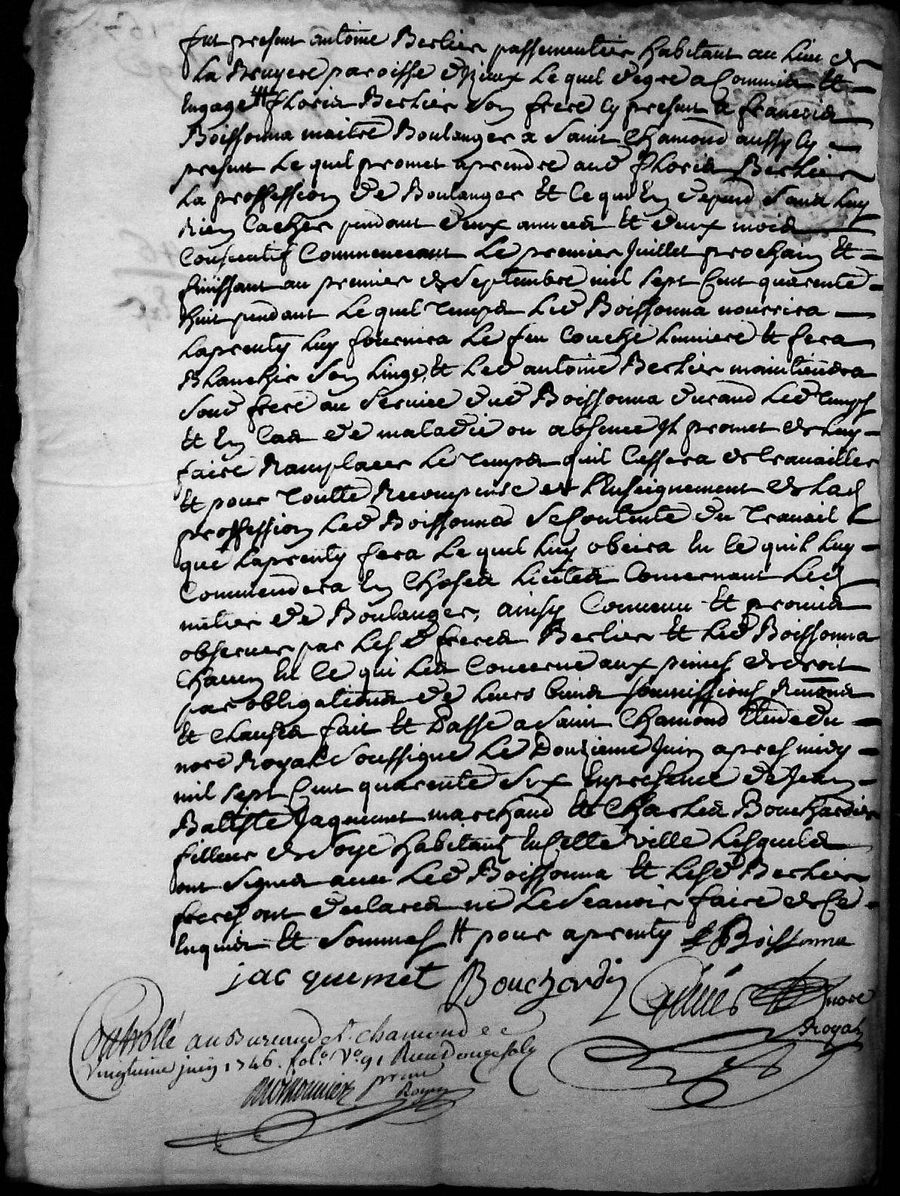 fut present antoine Berlier passementier habitant au lieu de
La Bruyere paroisse d'Izieux Lequel degre a Commis et
Engagé # Floris Berlier son frere cy present a francois
Boissonna maitre Boulanger a Saint Chamond aussy cy
present Lequel promet aprendre aud Floris Berlier
La proffession de Boulanger et ce quil en depend sans luy
Rien Cacher pendant deux années et deux mois
Consecutif Commencent Le premier Juillet prochain et
finissant au premier de Septembre mil sept Cent quarente
huit pendant Lequel temps Led Boissonna nourrira
Laprenty luy fournira Le feu Couche Lumiere et fera
Blanchir son linge, et Led antoine Berlier maintiendra
sond frere au service dud Boissonna durand Led temps
et En Cas de maladie ou absence jl promet de luy
faire Ramplacer Le temps quil Cessera de travailler
et pour toutte Recompense de L'Enseignement de Lad
proffession Led Boissonna se Contente du travail
que Laprenty fera Lequel luy obeira En ce quil luy
Commendera En Choses Licites Concernant Led
mêtier de Boulanger, ainsy Convenu et promis
observer par Lesd freres Berlier et Led Boissonna
Chacun En ce qui Les Concerne aux peines de droit
par obligations de Leurs biens soumissions Renons
et Clauses fait et Passé a Saint Chamond Etude du
nore Royal soussigné Le Douzieme Juin apres midy
mil sept Cent quarente six En presence de Jean
Battiste Jaquemet marchand et Charles Bouchardin
filleur de soye habitants En cette ville Lesquels
ont signés avec Led Boissonna et Lesd Berlier
freres ont declarés ne Le scavoir faire de Ce
Enquis et sommes # pour aprenty f Boissonna
jacquemet Bouchardin nore
Royal
Controllé au Bureau de St. chamond ce
vingtieme juin 1746. fol. Vo 91 Receu douze sols